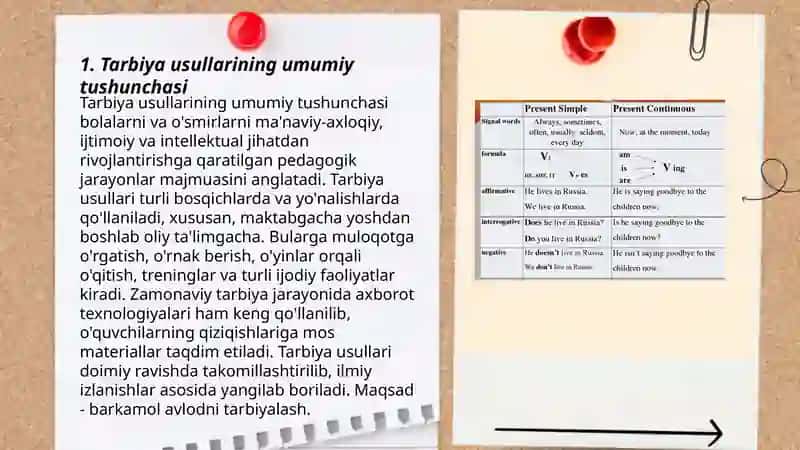 1. Tarbiya usullarining umumiy
tushunchasi
Tarbiya usullarining umumiy tushunchasi
bolalarni va o'smirlarni ma'naviy-axloqiy,
ijtimoiy va intellektual jihatdan
rivojlantirishga qaratilgan pedagogik
jarayonlar majmuasini anglatadi. Tarbiya
usullari turli bosqichlarda va yo'nalishlarda
qo'llaniladi, xususan, maktabgacha yoshdan
boshlab oliy ta'limgacha. Bularga muloqotga
o'rgatish, o'rnak berish, o'yinlar orqali
o'qitish, treninglar va turli ijodiy faoliyatlar
kiradi. Zamonaviy tarbiya jarayonida axborot
texnologiyalari ham keng qo'llanilib,
o'quvchilarning qiziqishlariga mos
materiallar taqdim etiladi. Tarbiya usullari
doimiy ravishda takomillashtirilib, ilmiy
izlanishlar asosida yangilab boriladi. Maqsad
- barkamol avlodni tarbiyalash.
Present Simple Present Continuous
Signal words
Always, sometimes,
often, usually seldom,
every day
Now, at the moment, today
formula
V
am
is
are
V ing
affirmative
He lives in Russia.
We live in Russia.
He is saying goodbye to the
children now.
interrogative
Does he live in Russia?
Do you live in Russia?
Is he saying goodbye to the
children now?
negative
He doesn't live in Russia.
We don't live in Russia.
He isn't saying goodbye to the
children now.